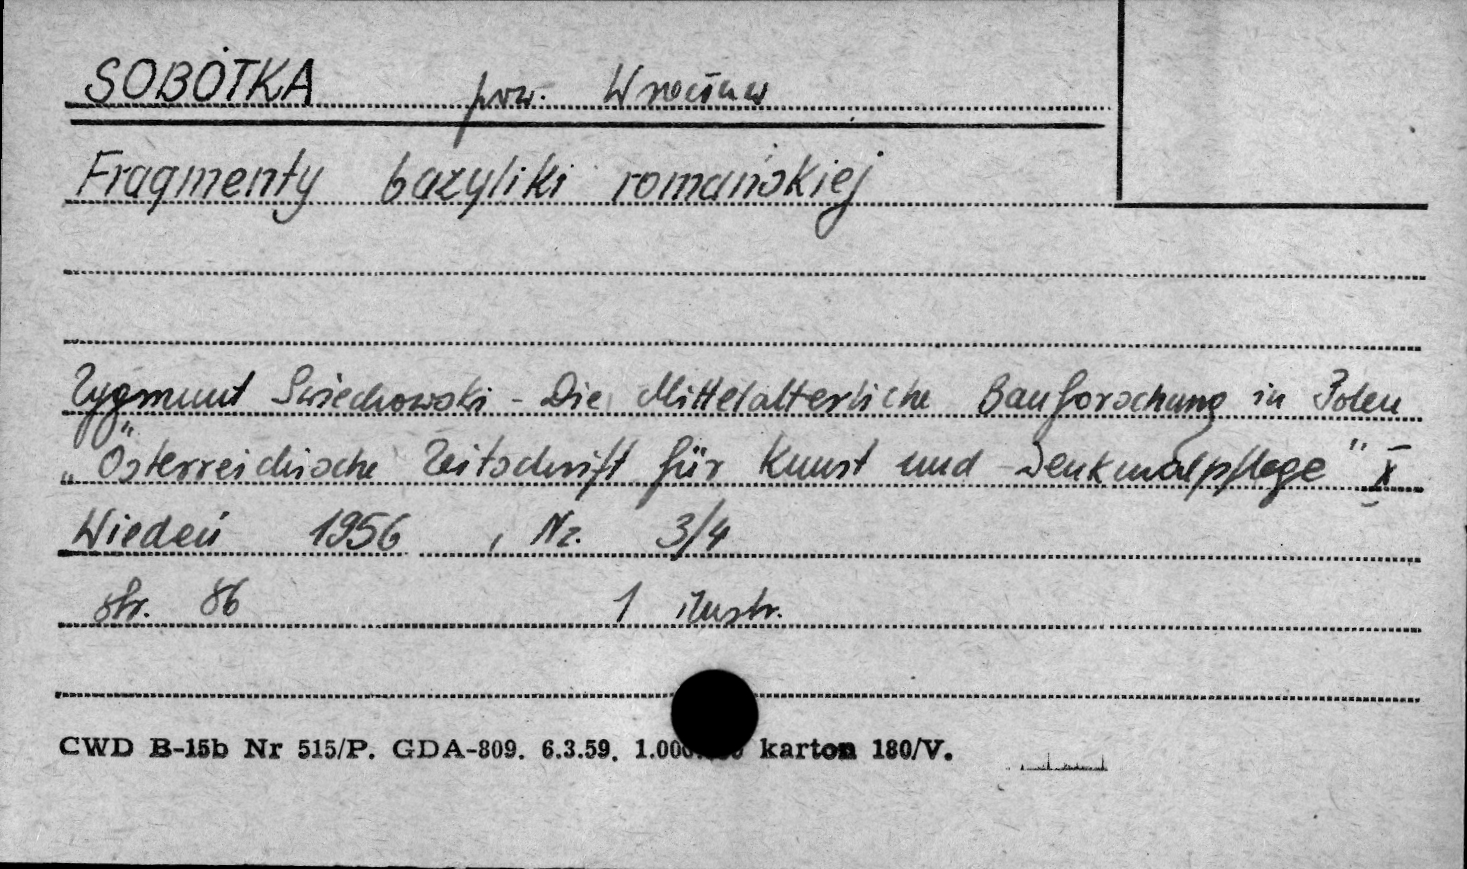 SOBÓTKA pow. Wrocław
Fragmenty bazyliki romańskiej
Zygmunt Świechowski - Die Mittelalterliche Bauforschung in Polen
„Österreichische Zeitschrift für Kunst und Denkmalpflege" X
Wiedeń 1956 , Nr. 3/4
str. 86 1 ilustr.
CWD B-15b Nr 515/P. GDA-809. 6.3.59. karton 180/V.